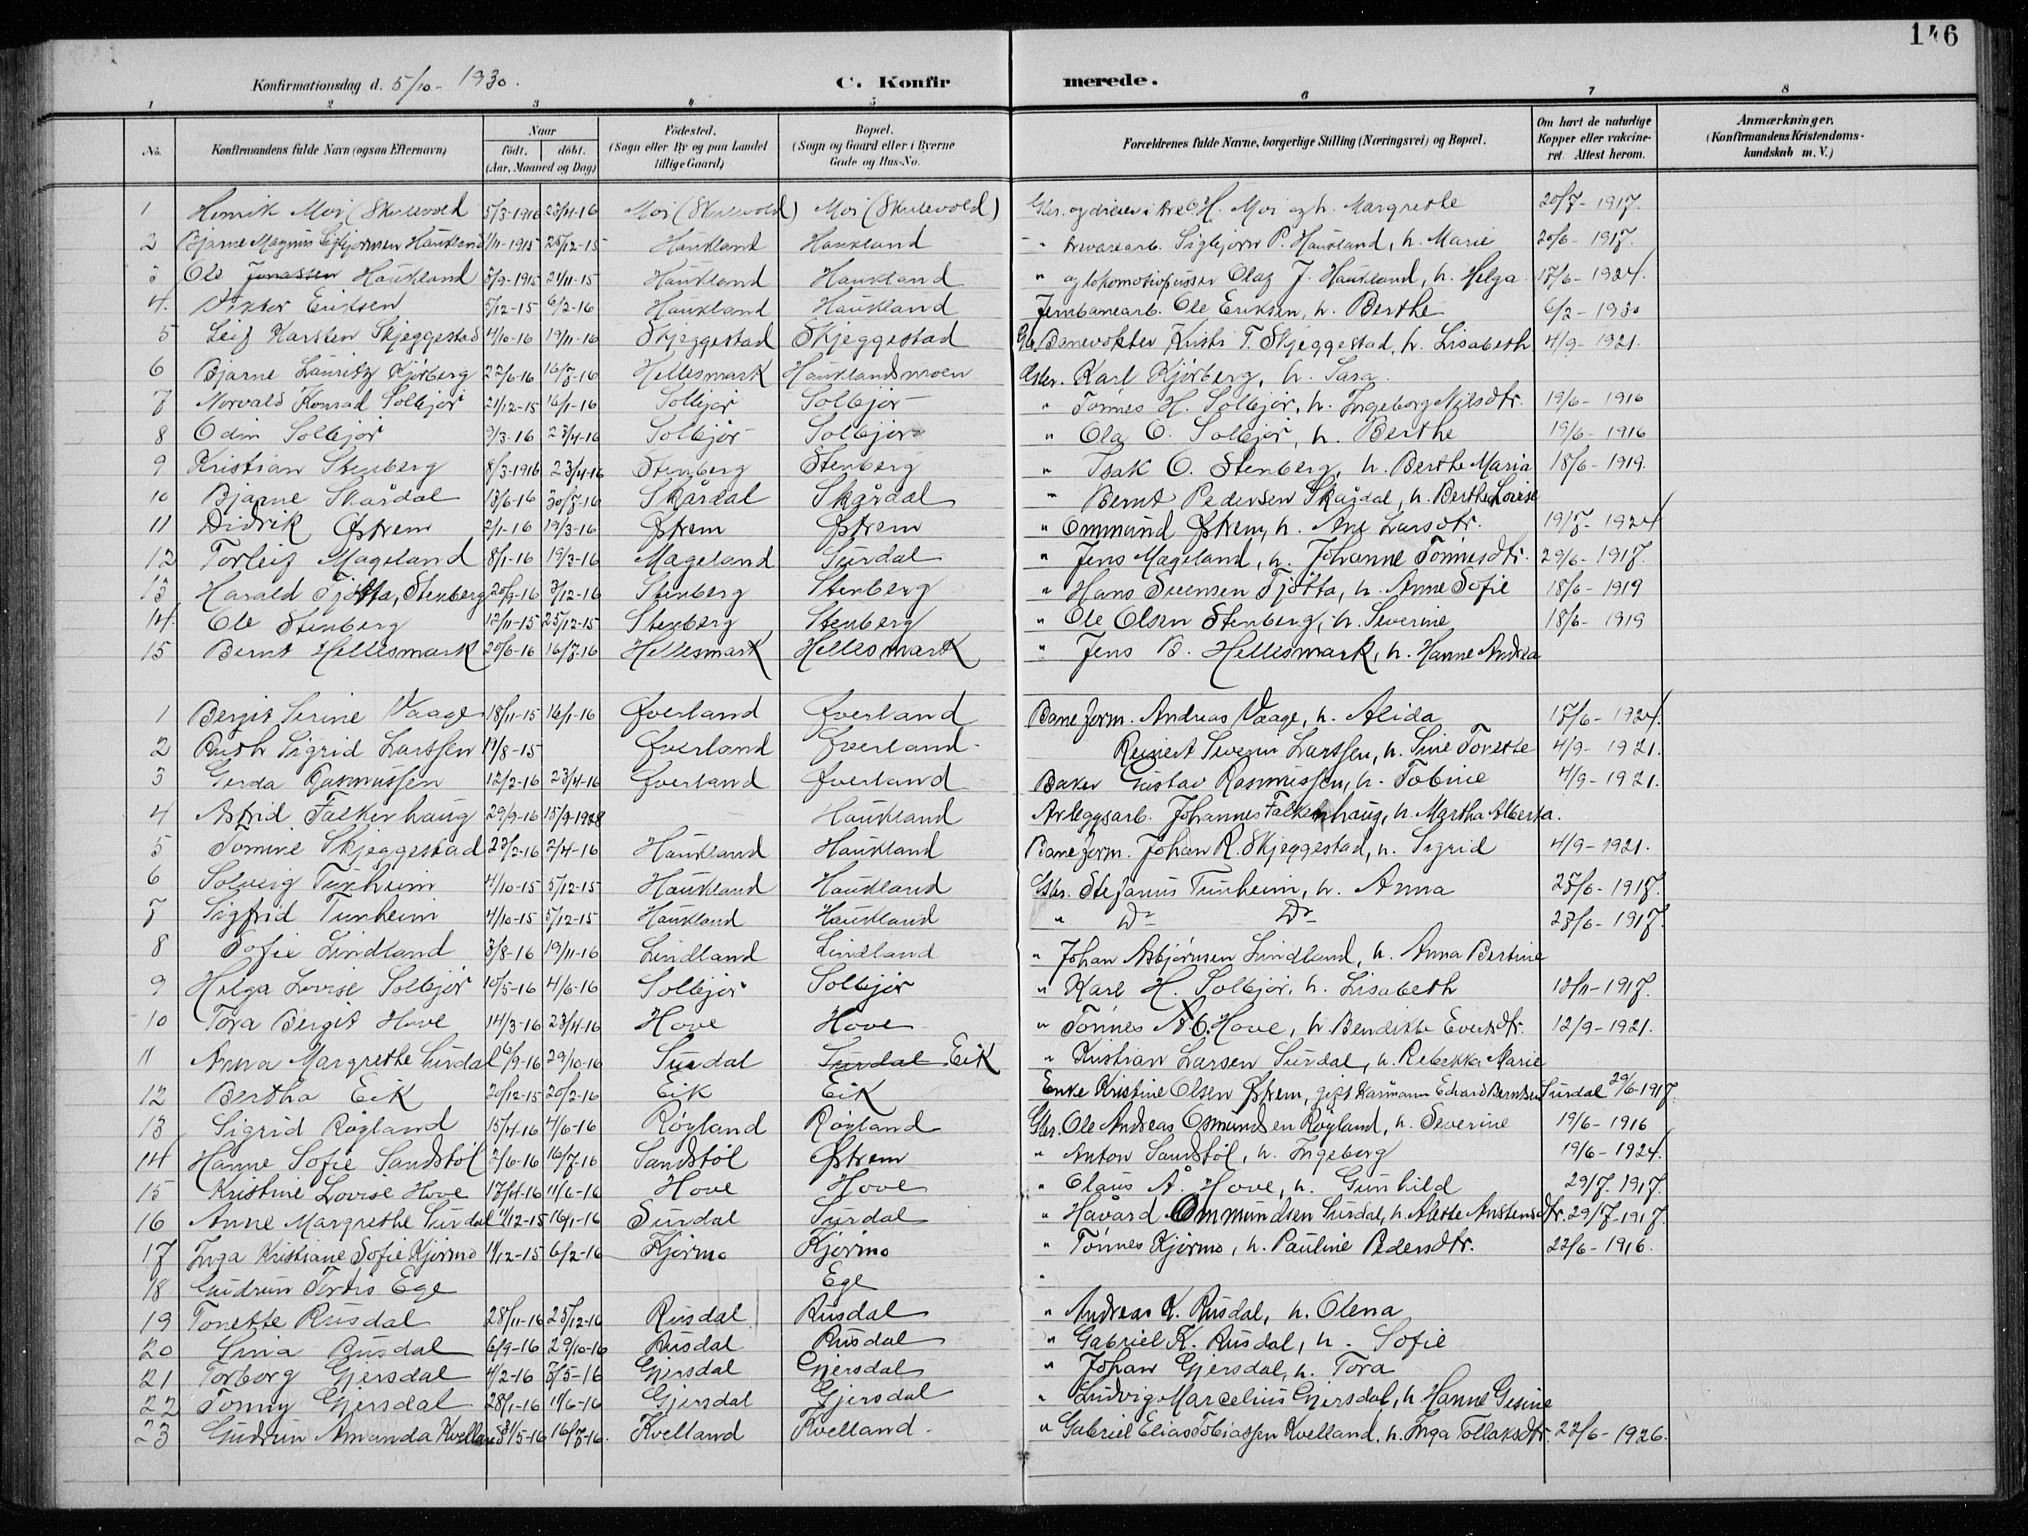 146
Konfirmationsdag d. 5/10 - 1930.
C. Konfirmerede.
1 2 3 4 5 6 7 8
No. Konfirmandens fulde Navn (ogsaa Efternavn) Naar født. døbt. (Aar, Maaned og Dag) Fødested. (Sogn eller By og paa Landet tillige Gaard) Bopæl. (Sogn og Gaard eller i Byerne Gade og Hus-No. Forældrenes fulde Navne, borgerlige Stilling (Næringsvei) og Bopæl. Om havt de naturlige Kopper eller vakcineret. Attest herom. Anmærkninger. (Konfirmandens Kristendomskundskab m. V.)
1 Henrik Moi (Skulevold 5/3-1916 23/4-16 Moi (Skulevold) Moi (Skulevold) Gbr. og H. Moi og h. Margrethe 20/7-1917.
2 Bjarne Magnus Sigbjørnsen Haukland 1/11-1915 25/12-15 Haukland Haukland " Sigbjørn P. Haukland, h. Marie 20/6-1917.
3 Ole Jonassen Haukland 5/9-1915 21/11-15 Haukland Haukland " og lokomotivpusser Olaf J. Haukland, h. Helga 17/6-1924.
4. Viktor Eriksen 5/12-15 6/2-16 Haukland Haukland Jernbanearb. Ole Eriksen, h. Berthe 6/2-1930
5 Leif Karsten Skjeggestad 4/10-16 19/11-16 Skjeggestad Skjeggestad Gb. Banevokter T. Skjeggestad, h. Lisabeth 4/9-1921.
6 Bjarne Lauritz Kjørberg 27/6-16 16/7-16 Hellesmark Hauklandsmoen Gbr. Karl Kjørberg, h. Sara.
7 Norvald Konrad Solbjør 21/12-15 16/1-16 Solbjør Solbjør " Tønnes H. Solbjør, h. Ingeborg Nilsdtr. 19/6-1916
8 Odin Solbjør 9/3-16 23/4-16 Solbjør Solbjør " Ola O. Solbjør, h. Berthe 19/6-1916
9 Kristian Stenberg 8/3-1916 23/4-16 Stenberg Stenberg " Isak O. Stenberg, h. Berthe Maria 18/6-1919.
10 Bjarne Skårdal 13/6-16 30/7-16 Skårdal Skårdal " Bernt Pedersen Skårdal, h. Berthe Lovise
11 Didrik Østrem 2/1-16 19/3-16 Østrem Østrem " Ommund Østrem, h. Ane Larsdtr. 19/7-1924
12 Torleif Mageland 8/1-16 19/3-16 Mageland Surdal " Jens Mageland, h. Johanne Tønnesdtr. 29/6-1917.
13 Harald Tjøtta, Stenberg 20/9-16 3/12-16 Stenberg Stenberg " Hans Svensen Tjøtta, h. Anne Sofie 18/6-1919
14. Ole Stenberg 12/11-15 25/12-15 Stenberg Stenberg " Ole Olsen Stenberg, h. Severine 18/6-1919
15 Bernt Hellesmark 20/6-16 16/7-16 Hellesmark Hellesmark " Jens B. Hellesmark, h. Hanne Andrea
1 Bergit Serine Vaage 18/11-15 16/1-16 Øverland Øverland Baneform. Andreas Vaage, h. Alida 17/6-1924.
2 Ruth Sigrid Larssen 17/8-15 Øverland Øverland Reinert Severin Larssen, h. Sine Tovette 4/9-1921.
3 Gerda Rasmussen 12/2-16 23/4-16 Øverland Øverland Baker Gustav Rasmussen, h. Tobine 4/9-1921.
4 Astrid Falkenhaug 29/9-16 15/9-1928 Haukland Anleggsarb. Johannes Falkenhaug, h. Martha Alberta.
5 Tomine Skjeggestad 23/2-16 2/4-16 Haukland Haukland Baneform. Johan R. Skjeggestad, h. Sigrid 4/9-1921.
6 Solveig Tunheim 4/10-15 5/12-15 Haukland Haukland Gbr. Stefanus Tunheim, h. Anna 25/6-1917.
7 Sigfrid Tunheim 4/10-15 5/12-15 Haukland Haukland " Do Do 23/6-1917.
8 Sofie Lindland 3/8-16 19/11-16 Lindland Lindland " Johan Asbjørnsen Lindland, h. Anna Bertine
9 Helga Lovise Solbjør 10/5-16 4/6-16 Solbjør Solbjør " Karl H. Solbjør, h. Lisabeth 10/11-1917.
10 Tora Berget Hove 14/3-16 23/4-16 Hove Hove " Tønnes O. Hove, h. Bendikte Evertsdtr. 12/9-1921.
11 Anna Margrethe Surdal 6/9-16 29/10-16 Surdal Surdal Eik " Kristian Larsen Surdal, h. Rebekka Marie
12 Bertha Eik 20/12-15 20/2-16 Eik Eik Enke Kristine Olsen Østrem, gift Edvard Berntsen Surdal 29/6-1917.
13 Sigrid Røyland 15/4-16 4/6-16 Røyland Røyland Gbr. Ole Andreas Osmundsen Røyland, h. Severine 19/6-1916
14 Hanne Sofie Sandstøl 2/6-16 16/7-16 Sandstøl Østrem " Anton Sandstøl, h. Ingeborg 19/6-1924.
15 Kristine Lovise Hove 17/4-16 11/6-16 Hove Hove " Olaus Å. Hove, h. Gunhild 29/7. 1917.
16 Anne Margrethe Surdal 11/12-15 16/1-16 Surdal Surdal " Håvard Ommundsen Surdal, h. Austensdtr. 29/7-1917.
17 Inga Kristiane Sofie Kjørmo 11/12-15 6/2-16 Kjørmo Kjørmo " Tønnes Kjørmo, h. Pauline Pedersdtr. 22/6-1916.
18 Gudrun Tordis Ege Ege "
19 Tonette Rusdal 28/11-16 25/12-16 Rusdal Rusdal " Andreas K. Rusdal, h. Olena
20 Sina Rusdal 6/9-16 29/10-16 Rusdal Rusdal " Gabriel K. Rusdal, h. Sofie
21 Torborg Gjersdal 4/2-16 7/5-16 Gjersdal Gjersdal " Johan Gjersdal, h. Tora
22 Tomny Gjersdal 28/1-16 11/6-16 Gjersdal Gjersdal " Ludvig Marcelius Gjersdal, h. Hanne Gesine
23 Gudrun Amanda Kvelland 31/5-16 16/7-16. Kvelland Kvelland. " Gabriel Elias Tobiassen Kvelland, h. Inga Tollaksdtr. 22/6-1926.